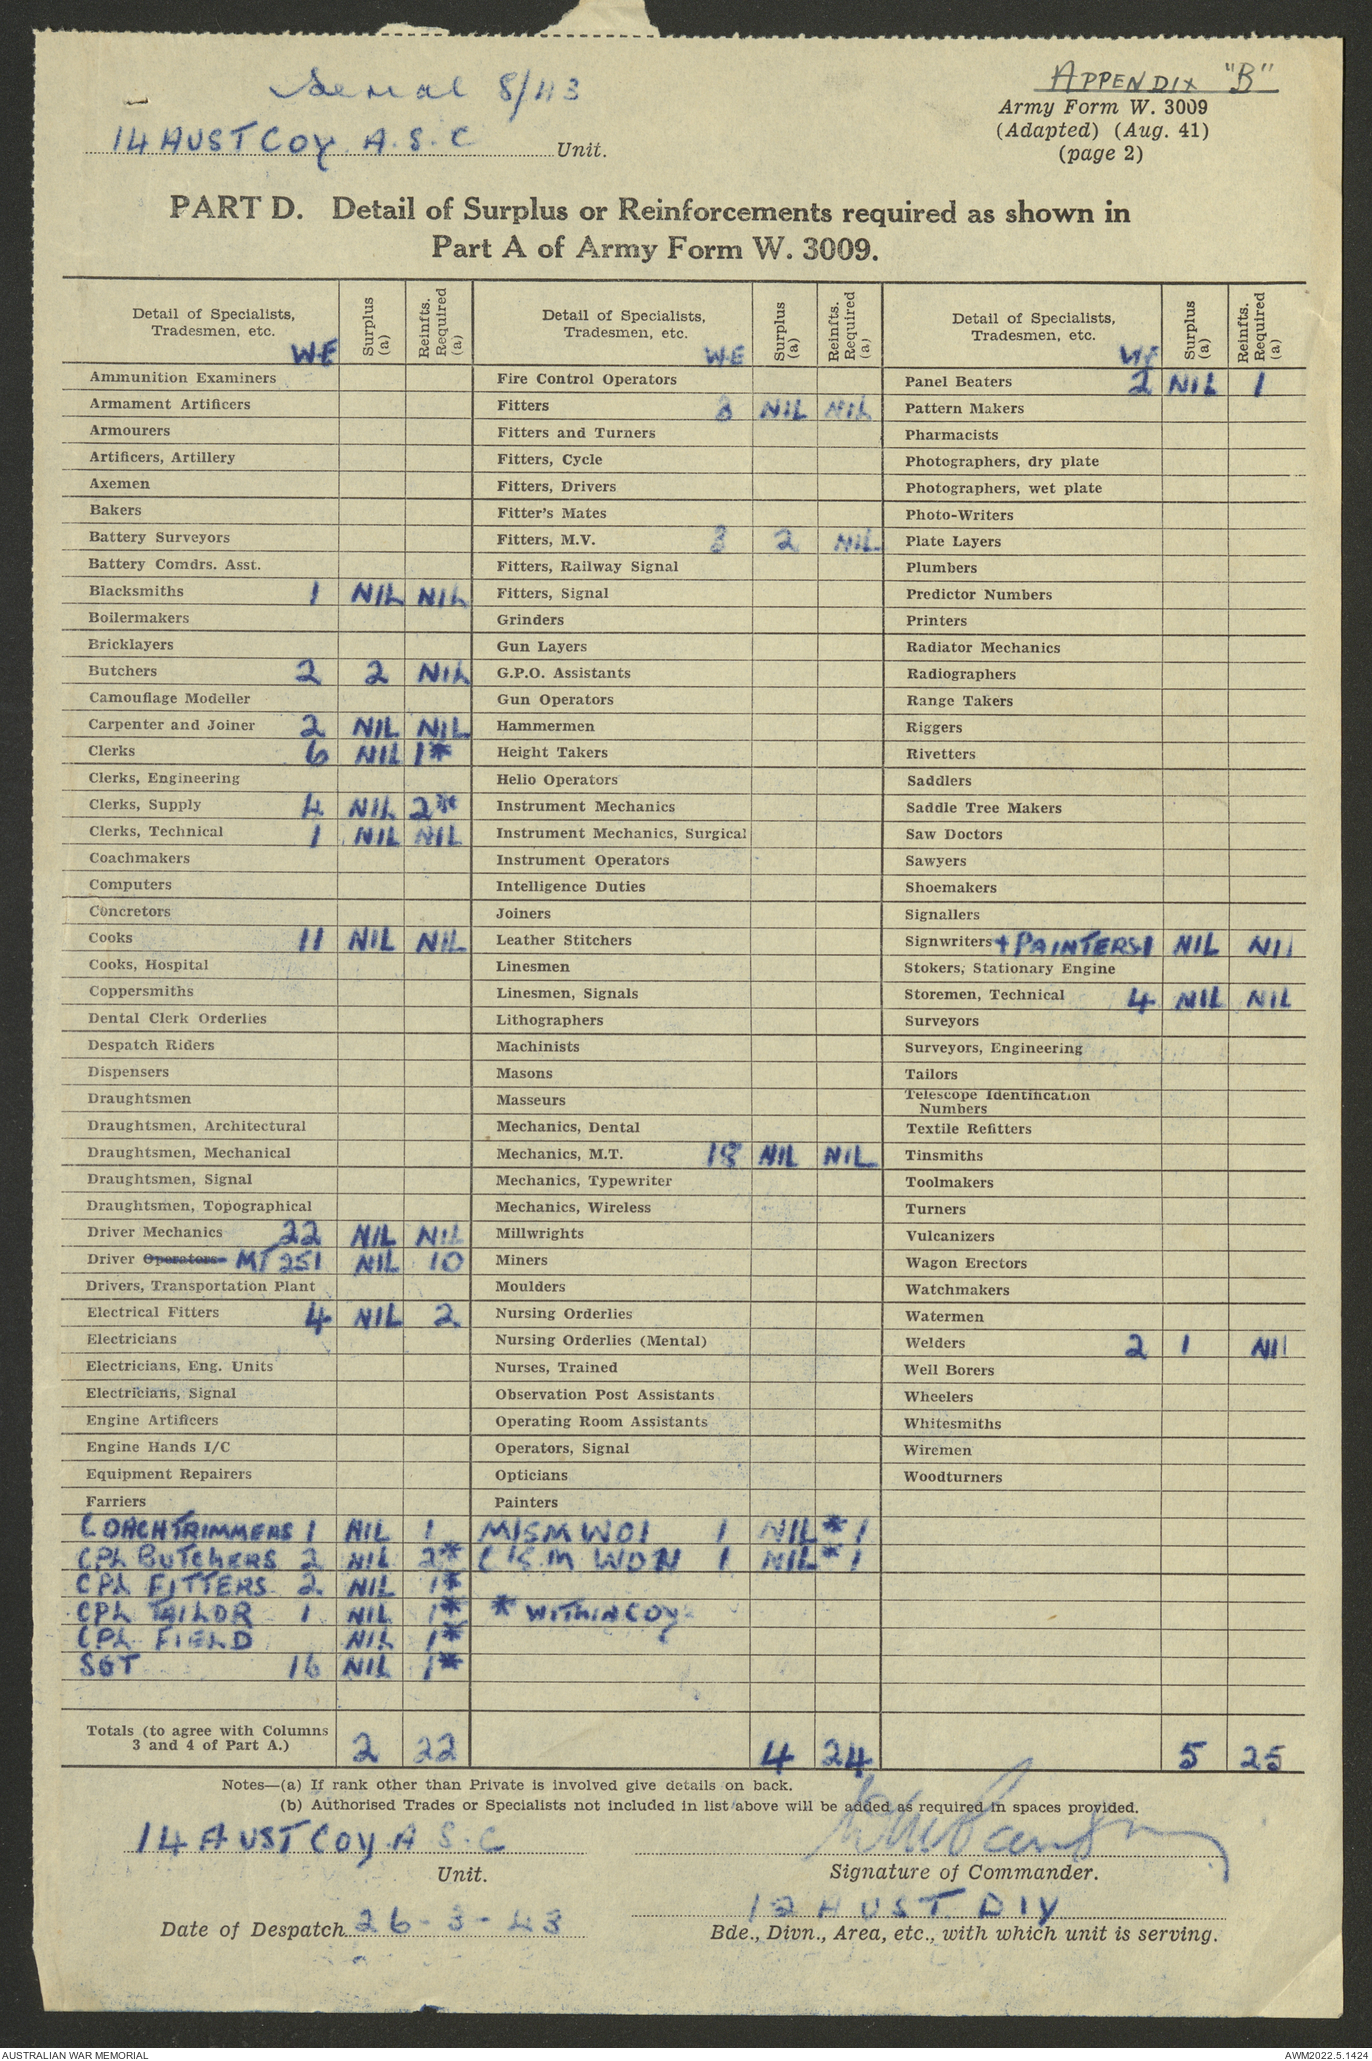 Serial 8/43
APPENDIX "B"
Army Form W. 3009
(Adapted) (Aug. 41)
(page 2)
14 AUST COY A.S.C Unit.
PART D. Detail of Surplus or Reinforcements required as shown in
Part A of Army Form W. 3009.
Detail of Specialists, Tradesmen, etc. W.E Surplus (a) Reinfts. Required (a)
Ammunition Examiners
Armament Artificers
Armourers
Artificers, Artillery
Axemen
Bakers
Battery Surveyors
Battery Comdrs. Asst.
Blacksmiths 1 NIL NIL
Boilermakers
Bricklayers
Butchers 2 2 NIL
Camouflage Modeller
Carpenter and Joiner 2 NIL NIL
Clerks 6 NIL 1*
Clerks, Engineering
Clerks, Supply 4 NIL 2*
Clerks, Technical 1 NIL NIL
Coachmakers
Computers
Concretors
Cooks 11 NIL NIL
Cooks, Hospital
Coppersmiths
Dental Clerk Orderlies
Despatch Riders
Dispensers
Draughtsmen
Draughtsmen, Architectural
Draughtsmen, Mechanical
Draughtsmen, Signal
Draughtsmen, Topographical
Driver Mechanics 22 NIL NIL
Driver Operators MT 251 NIL 10
Drivers, Transportation Plant
Electrical Fitters 4 NIL 2
Electricians
Electricians, Eng. Units
Electricians, Signal
Engine Artificers
Engine Hands I/C
Equipment Repairers
Farriers
COACHTRIMMERS 1 NIL 1
CPL BUTCHERS 2 NIL 2*
CPL FITTERS 2 NIL 1*
CPL TAILOR 1 NIL 1*
CPL FIELD NIL 1*
SGT 16 NIL 1*
Totals (to agree with Columns
3 and 4 of Part A.) 2 22
Detail of Specialists, Tradesmen, etc. W.E Surplus (a) Reinfts. Required (a)
Fire Control Operators
Fitters 3 NIL NIL
Fitters and Turners
Fitters, Cycle
Fitters, Drivers
Fitter's Mates
Fitters, M.V. 3 2 NIL
Fitters, Railway Signal
Fitters, Signal
Grinders
Gun Layers
G.P.O. Assistants
Gun Operators
Hammermen
Height Takers
Helio Operators
Instrument Mechanics
Instrument Mechanics, Surgical
Instrument Operators
Intelligence Duties
Joiners
Leather Stitchers
Linesmen
Linesmen, Signals
Lithographers
Machinists
Masons
Masseurs
Mechanics, Dental
Mechanics, M.T. 18 NIL NIL
Mechanics, Typewriter
Mechanics, Wireless
Millwrights
Miners
Moulders
Nursing Orderlies
Nursing Orderlies (Mental)
Nurses, Trained
Observation Post Assistants
Operating Room Assistants
Operators, Signal
Opticians
Painters
MISM WOI 1 NIL * 1
1 NIL * 1
* WITHIN COY
4 24
Detail of Specialists, Tradesmen, etc. W.E Surplus (a) Reinfts. Required (a)
Panel Beaters 2 NIL 1
Pattern Makers
Pharmacists
Photographers, dry plate
Photographers, wet plate
Photo-Writers
Plate Layers
Plumbers
Predictor Numbers
Printers
Radiator Mechanics
Radiographers
Range Takers
Riggers
Rivetters
Saddlers
Saddle Tree Makers
Saw Doctors
Sawyers
Shoemakers
Signallers
Signwriters + PAINTERS 1 NIL NIL
Stokers, Stationary Engine
Storemen, Technical 4 NIL NIL
Surveyors
Surveyors, Engineering
Tailors
Telescope Identification
Numbers
Textile Refitters
Tinsmiths
Toolmakers
Turners
Vulcanizers
Wagon Erectors
Watchmakers
Watermen
Welders 2 1 NIL
Well Borers
Wheelers
Whitesmiths
Wiremen
Woodturners
5 25
Notes—(a) If rank other than Private is involved give details on back.
(b) Authorised Trades or Specialists not included in list above will be added as required in spaces provided.
14 AUST COY A S.C
Unit.
Signature of Commander.
Date of Despatch 26-3-43
12 AUST DIV
Bde., Divn., Area, etc., with which unit is serving.
AUSTRALIAN WAR MEMORIAL
AWM2022.5.1424